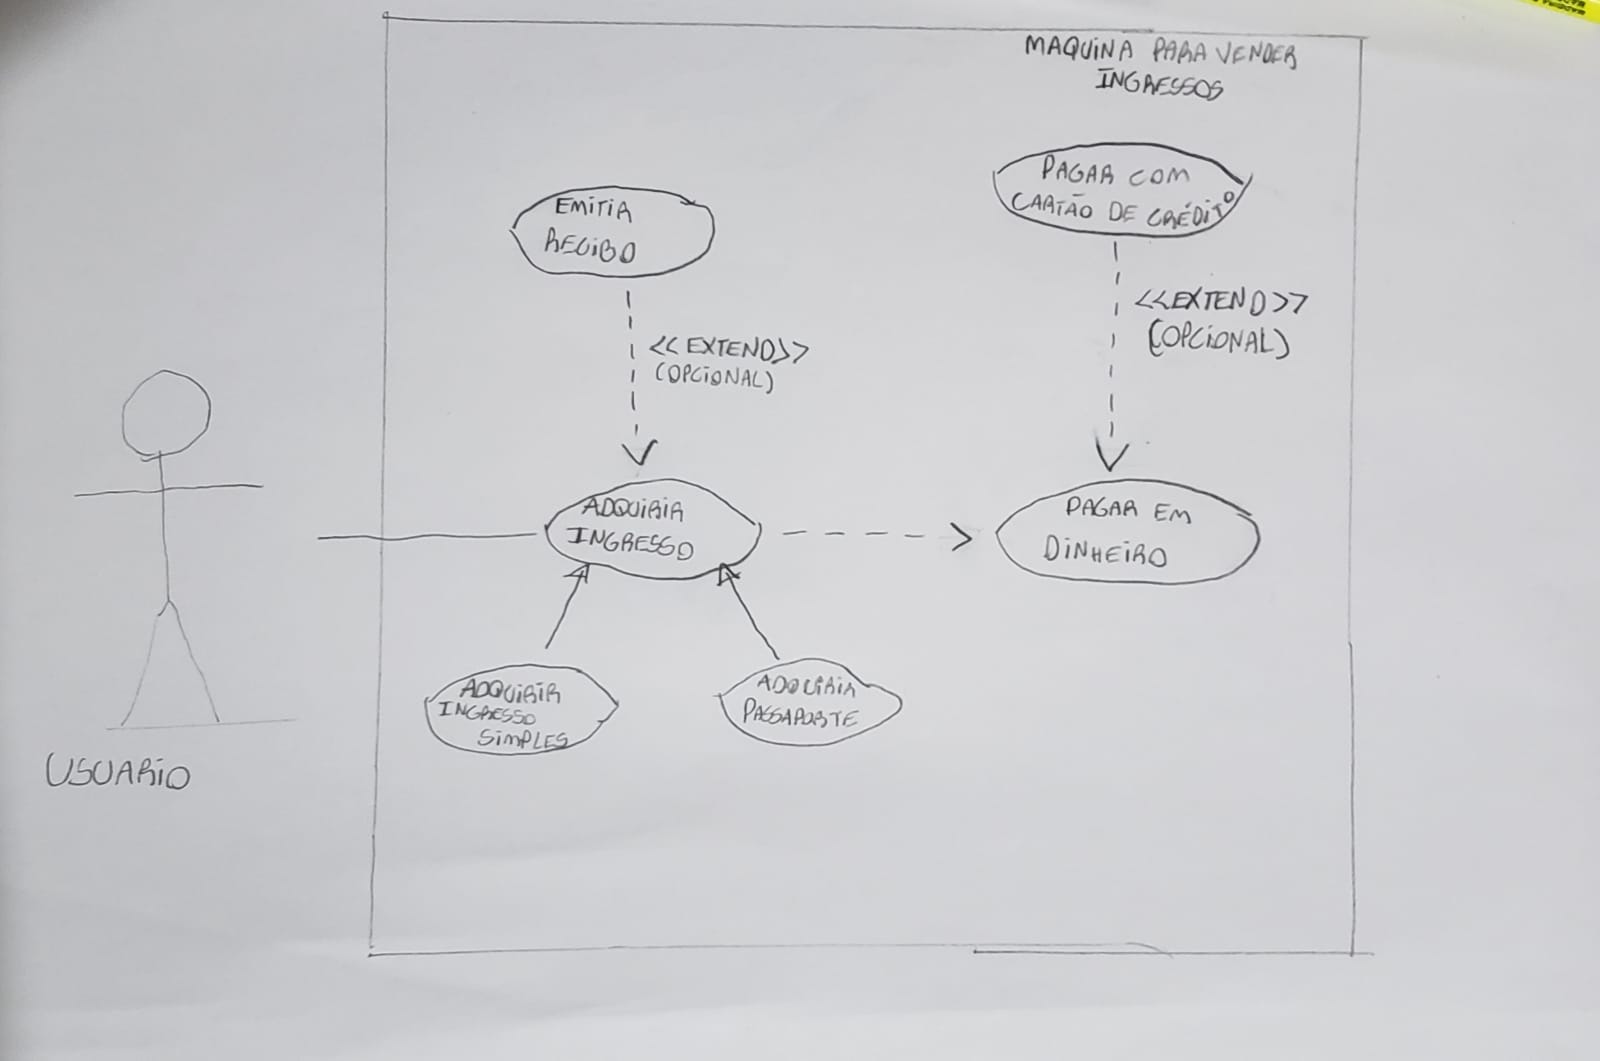 MAQUINA PARA VENDER
INGRESSOS
PAGAR COM
CARTÃO DE CRÉDITO
EMITIR
RECIBO
<<EXTEND>>
(OPCIONAL)
<<EXTEND>>
(OPCIONAL)
ADQUIRIR
INGRESSO
PAGAR EM
DINHEIRO
ADQUIRIR
INGRESSO
SIMPLES
ADQUIRIR
PASSAPORTE
USUARIO